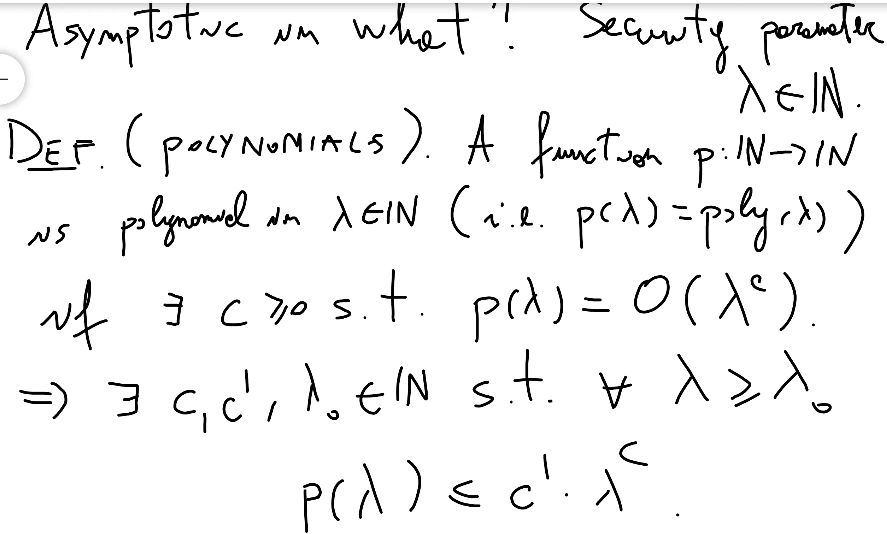 Asymptotic in what? Security parameter
λ ∈ ℕ.
DEF. (POLYNOMIALS). A function p: ℕ → ℕ
is polynomial in λ ∈ ℕ (i.e. p(λ) = poly(λ))
if ∃ c ≥ 0 s.t. p(λ) = O(λ^c).
⇒ ∃ c, c', λ₀ ∈ ℕ s.t. ∀ λ ≥ λ₀
p(λ) ≤ c' · λ^c.